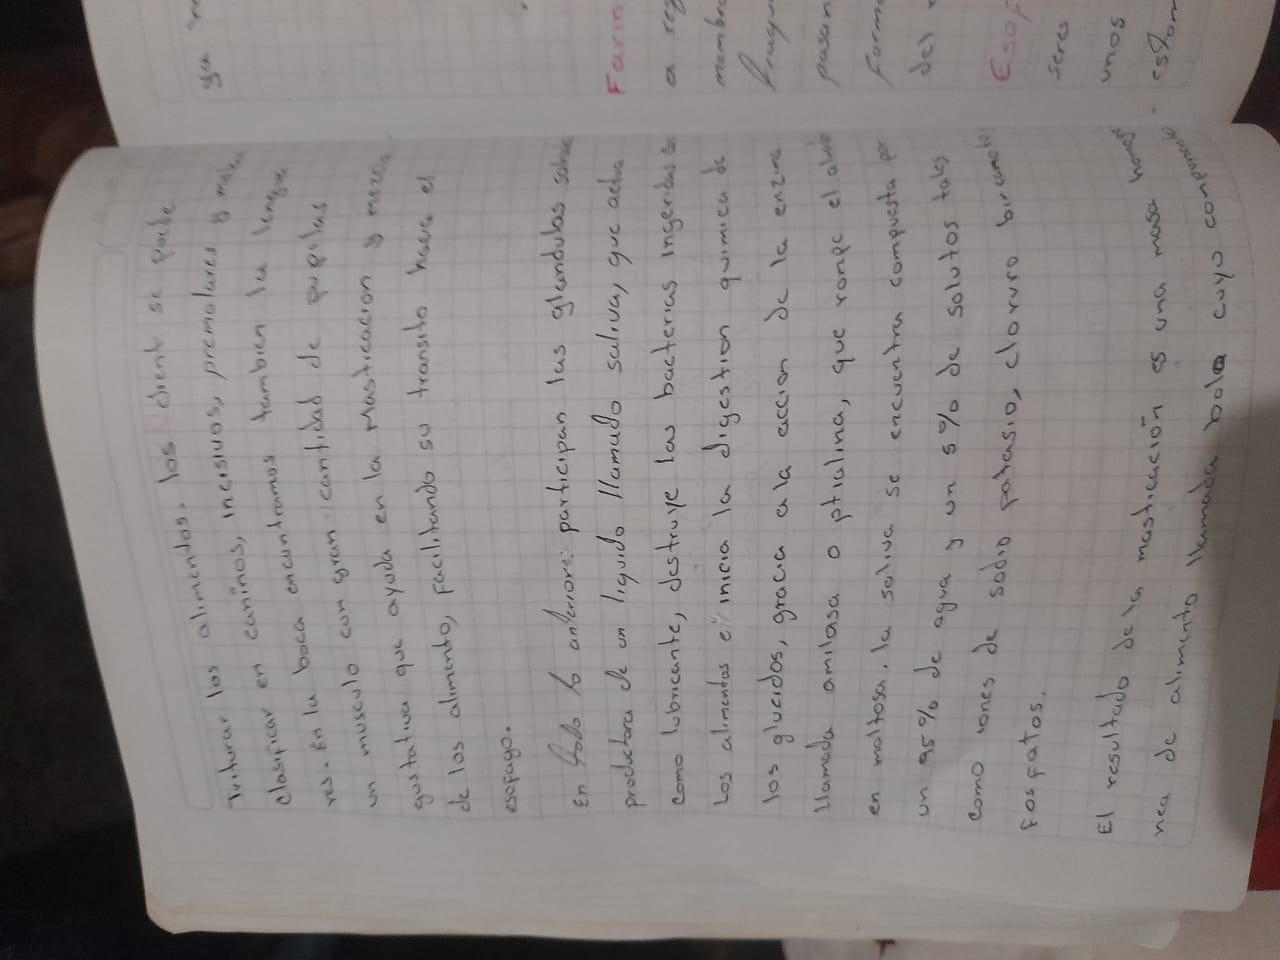 triturar los alimentos. los dient se puede
clasificar en caninos, incisivos, premolares y mola
res. en la boca encontramos tambien la lengua
un musculo con gran cantidad de pupilas
gustativa que ayuda en la Masticacion y mezcla
de los alimento, facilitando su transito hacia el
esofago.
En todo lo anterior: participan las glandulas
productora de un liquido llamado saliva, que actua
como lubricante, destruye las bacterias ingeridas
Los alimentos e inicia la digestion quimica de
los glucidos, gracia a la accion de la enzima
llamada amilasa o ptialina, que rompe el
en maltosa. la saliva se encuentra compuesta por
un 95% de agua y un 5% de solutos tales
como iones de sodio, potasio, cloruro
fosfatos.
El resultado de la masticación es una masa
nea de alimento llamada bolo cuyo
ya
Farin
a
membra
fragu
pasan
forma
del
Esof
seres
unos
estom